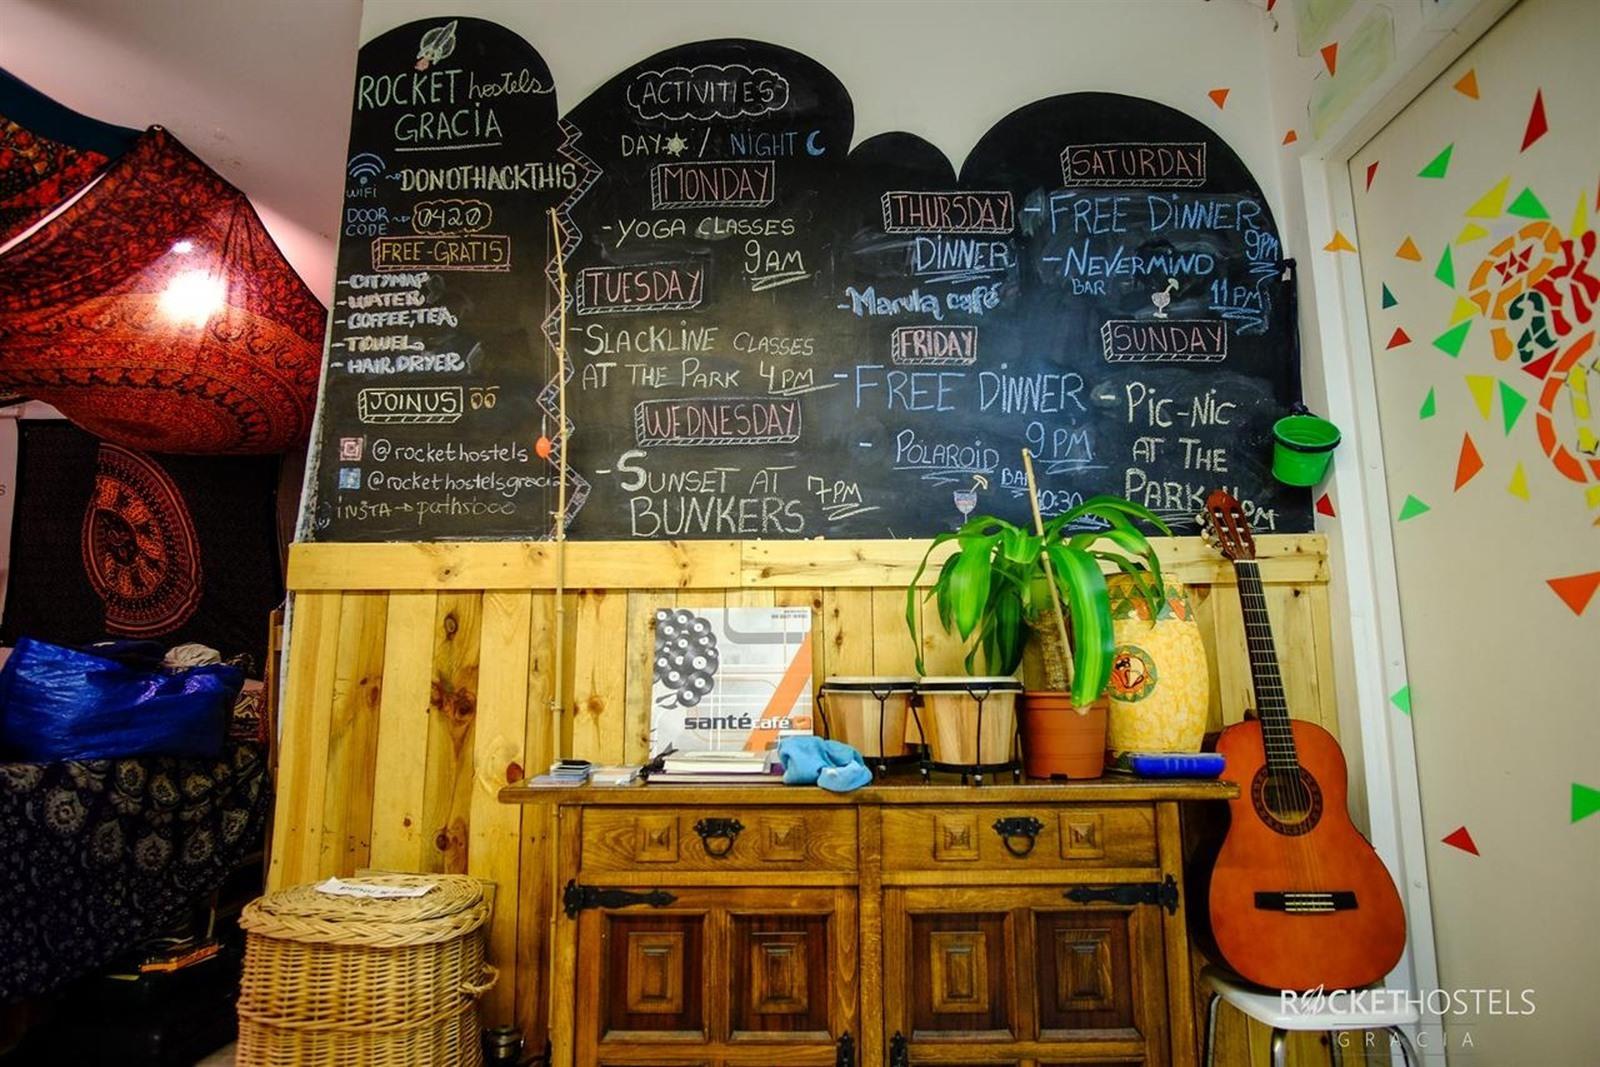 ROCKET hostels
GRACIA
WIFI
DONOTHACKTHIS
DOOR CODE
0420
FREE-GRATIS
- CITYMAP
- WATER
- COFFEE, TEA
- TOWEL
- HAIR DRYER
JOIN US
@rockethostels
@rockethostelsgracia
INSTA → pathsooo
ACTIVITIES
DAY / NIGHT
MONDAY
- YOGA CLASSES
9AM
TUESDAY
- SLACKLINE CLASSES
AT THE PARK 4PM
WEDNESDAY
- SUNSET AT
BUNKERS 7PM
THURSDAY
DINNER
- Marula café
FRIDAY
- FREE DINNER
9PM
- POLAROID
BAR
SATURDAY
- FREE DINNER
9PM
- NEVERMIND
BAR
11PM
SUNDAY
- PIC-NIC
AT THE
PARK
santé café
ROCKETHOSTELS
GRACIA